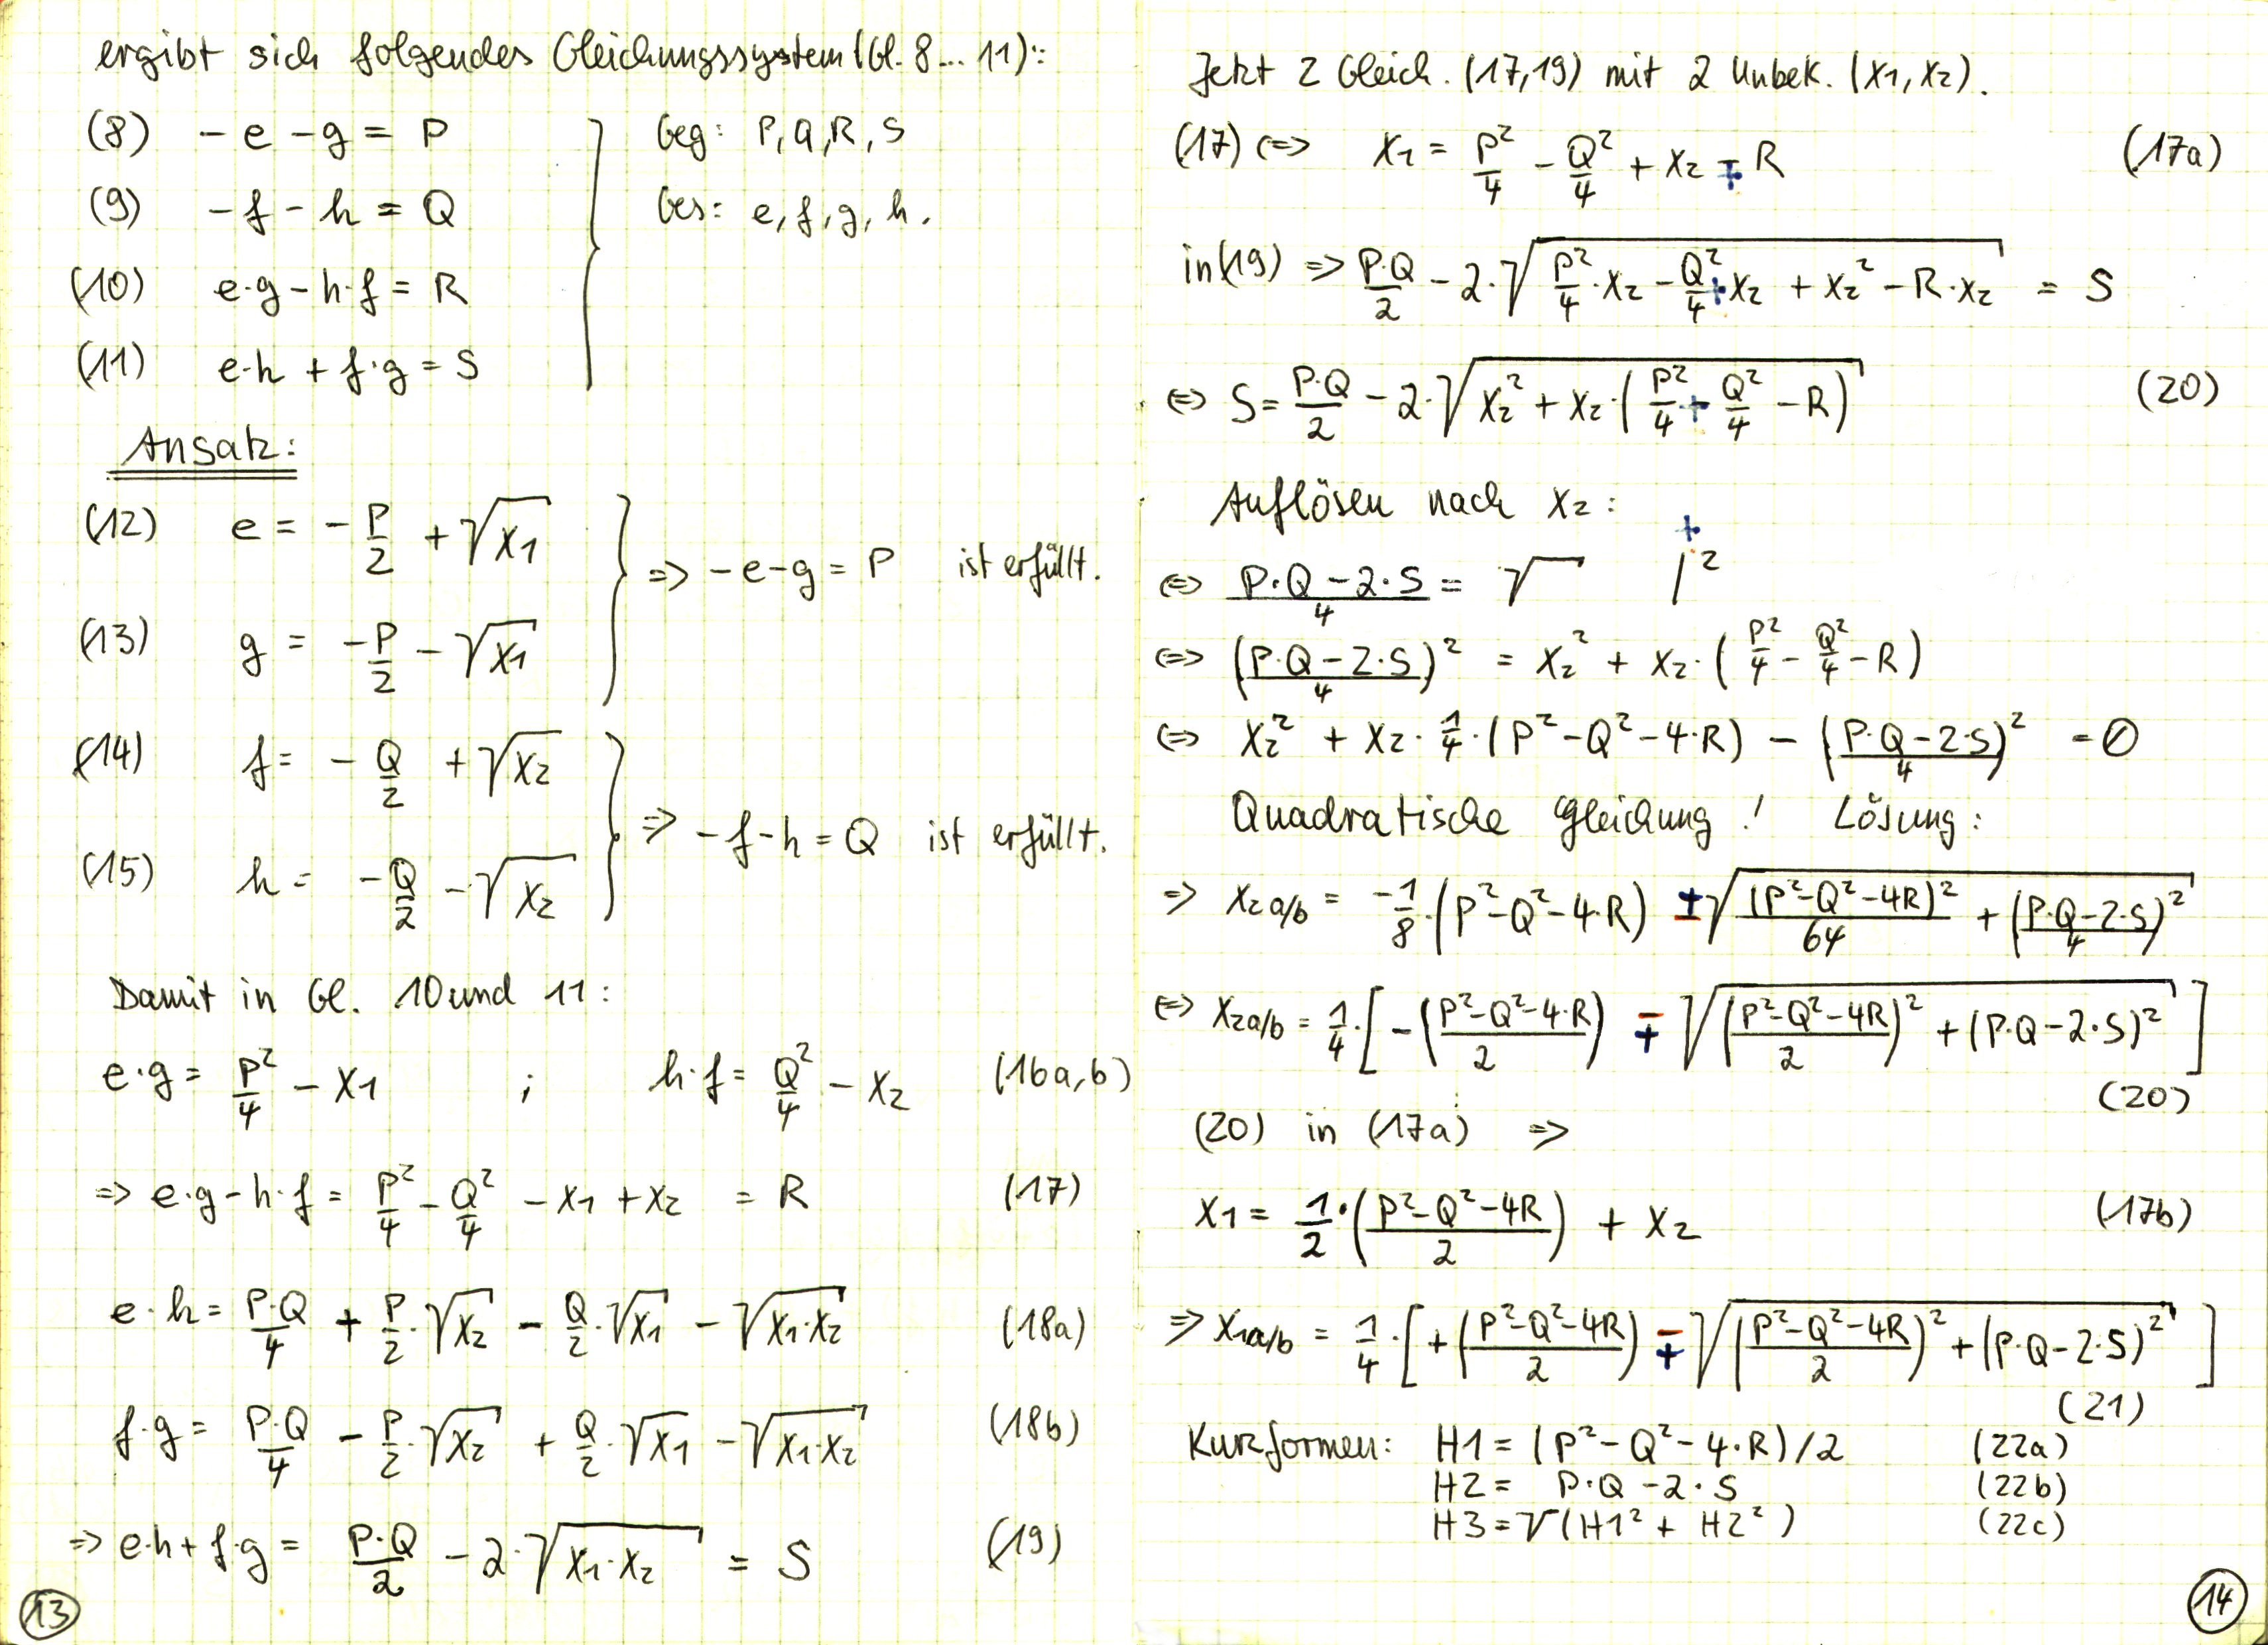 ergibt sich folgendes Gleichungssystem (Gl. 8... 11):
(8) -e -g = P
Geg: P, Q, R, S
(9) -f - h = Q
Ges: e, f, g, h.
(10) e·g - h·f = R
(11) e·h + f·g = S
Ansatz:
(12) e = -P/2 + √x1
(13) g = -P/2 - √x1
=> -e-g = P ist erfüllt.
(14) f = -Q/2 + √x2
(15) h = -Q/2 - √x2
=> -f-h = Q ist erfüllt.
Damit in Gl. 10 und 11:
e·g = P²/4 - x1 ; h·f = Q²/4 - x2 (16a,b)
=> e·g - h·f = P²/4 - Q²/4 - x1 + x2 = R (17)
e·h = P·Q/4 + P/2·√x2 - Q/2·√x1 - √(x1·x2) (18a)
f·g = P·Q/4 - P/2·√x2 + Q/2·√x1 - √(x1·x2) (18b)
=> e·h + f·g = P·Q/2 - 2·√(x1·x2) = S (19)
13
Jetzt 2 Gleich. (17,19) mit 2 Unbek. (x1, x2).
(17) <=> x1 = P²/4 - Q²/4 + x2 ∓ R (17a)
in (19) => P·Q/2 - 2·√(P²/4·x2 - Q²/4·x2 + x2² - R·x2) = S
<=> S = P·Q/2 - 2·√(x2² + x2·(P²/4 + Q²/4 - R)) (20)
Auflösen nach x2:
+
<=> (P·Q - 2·S)/4 = √ |²
<=> ((P·Q - 2·S)/4)² = x2² + x2·(P²/4 - Q²/4 - R)
<=> x2² + x2·1/4·(P² - Q² - 4·R) - ((P·Q - 2·S)/4)² = 0
Quadratische Gleichung! Lösung:
=> x2a/b = -1/8·(P² - Q² - 4·R) ± √((P² - Q² - 4R)²/64 + ((P·Q - 2·S)/4)²)
<=> x2a/b = 1/4·[-((P² - Q² - 4·R)/2) ∓ √(((P² - Q² - 4R)/2)² + (P·Q - 2·S)²)]
(20)
(20) in (17a) =>
x1 = 1/2·((P² - Q² - 4R)/2) + x2 (17b)
=> x1a/b = 1/4·[+((P² - Q² - 4R)/2) ∓ √(((P² - Q² - 4R)/2)² + (P·Q - 2·S)²)]
(21)
Kurzformen: H1 = (P² - Q² - 4·R)/2 (22a)
H2 = P·Q - 2·S (22b)
H3 = √(H1² + H2²) (22c)
14